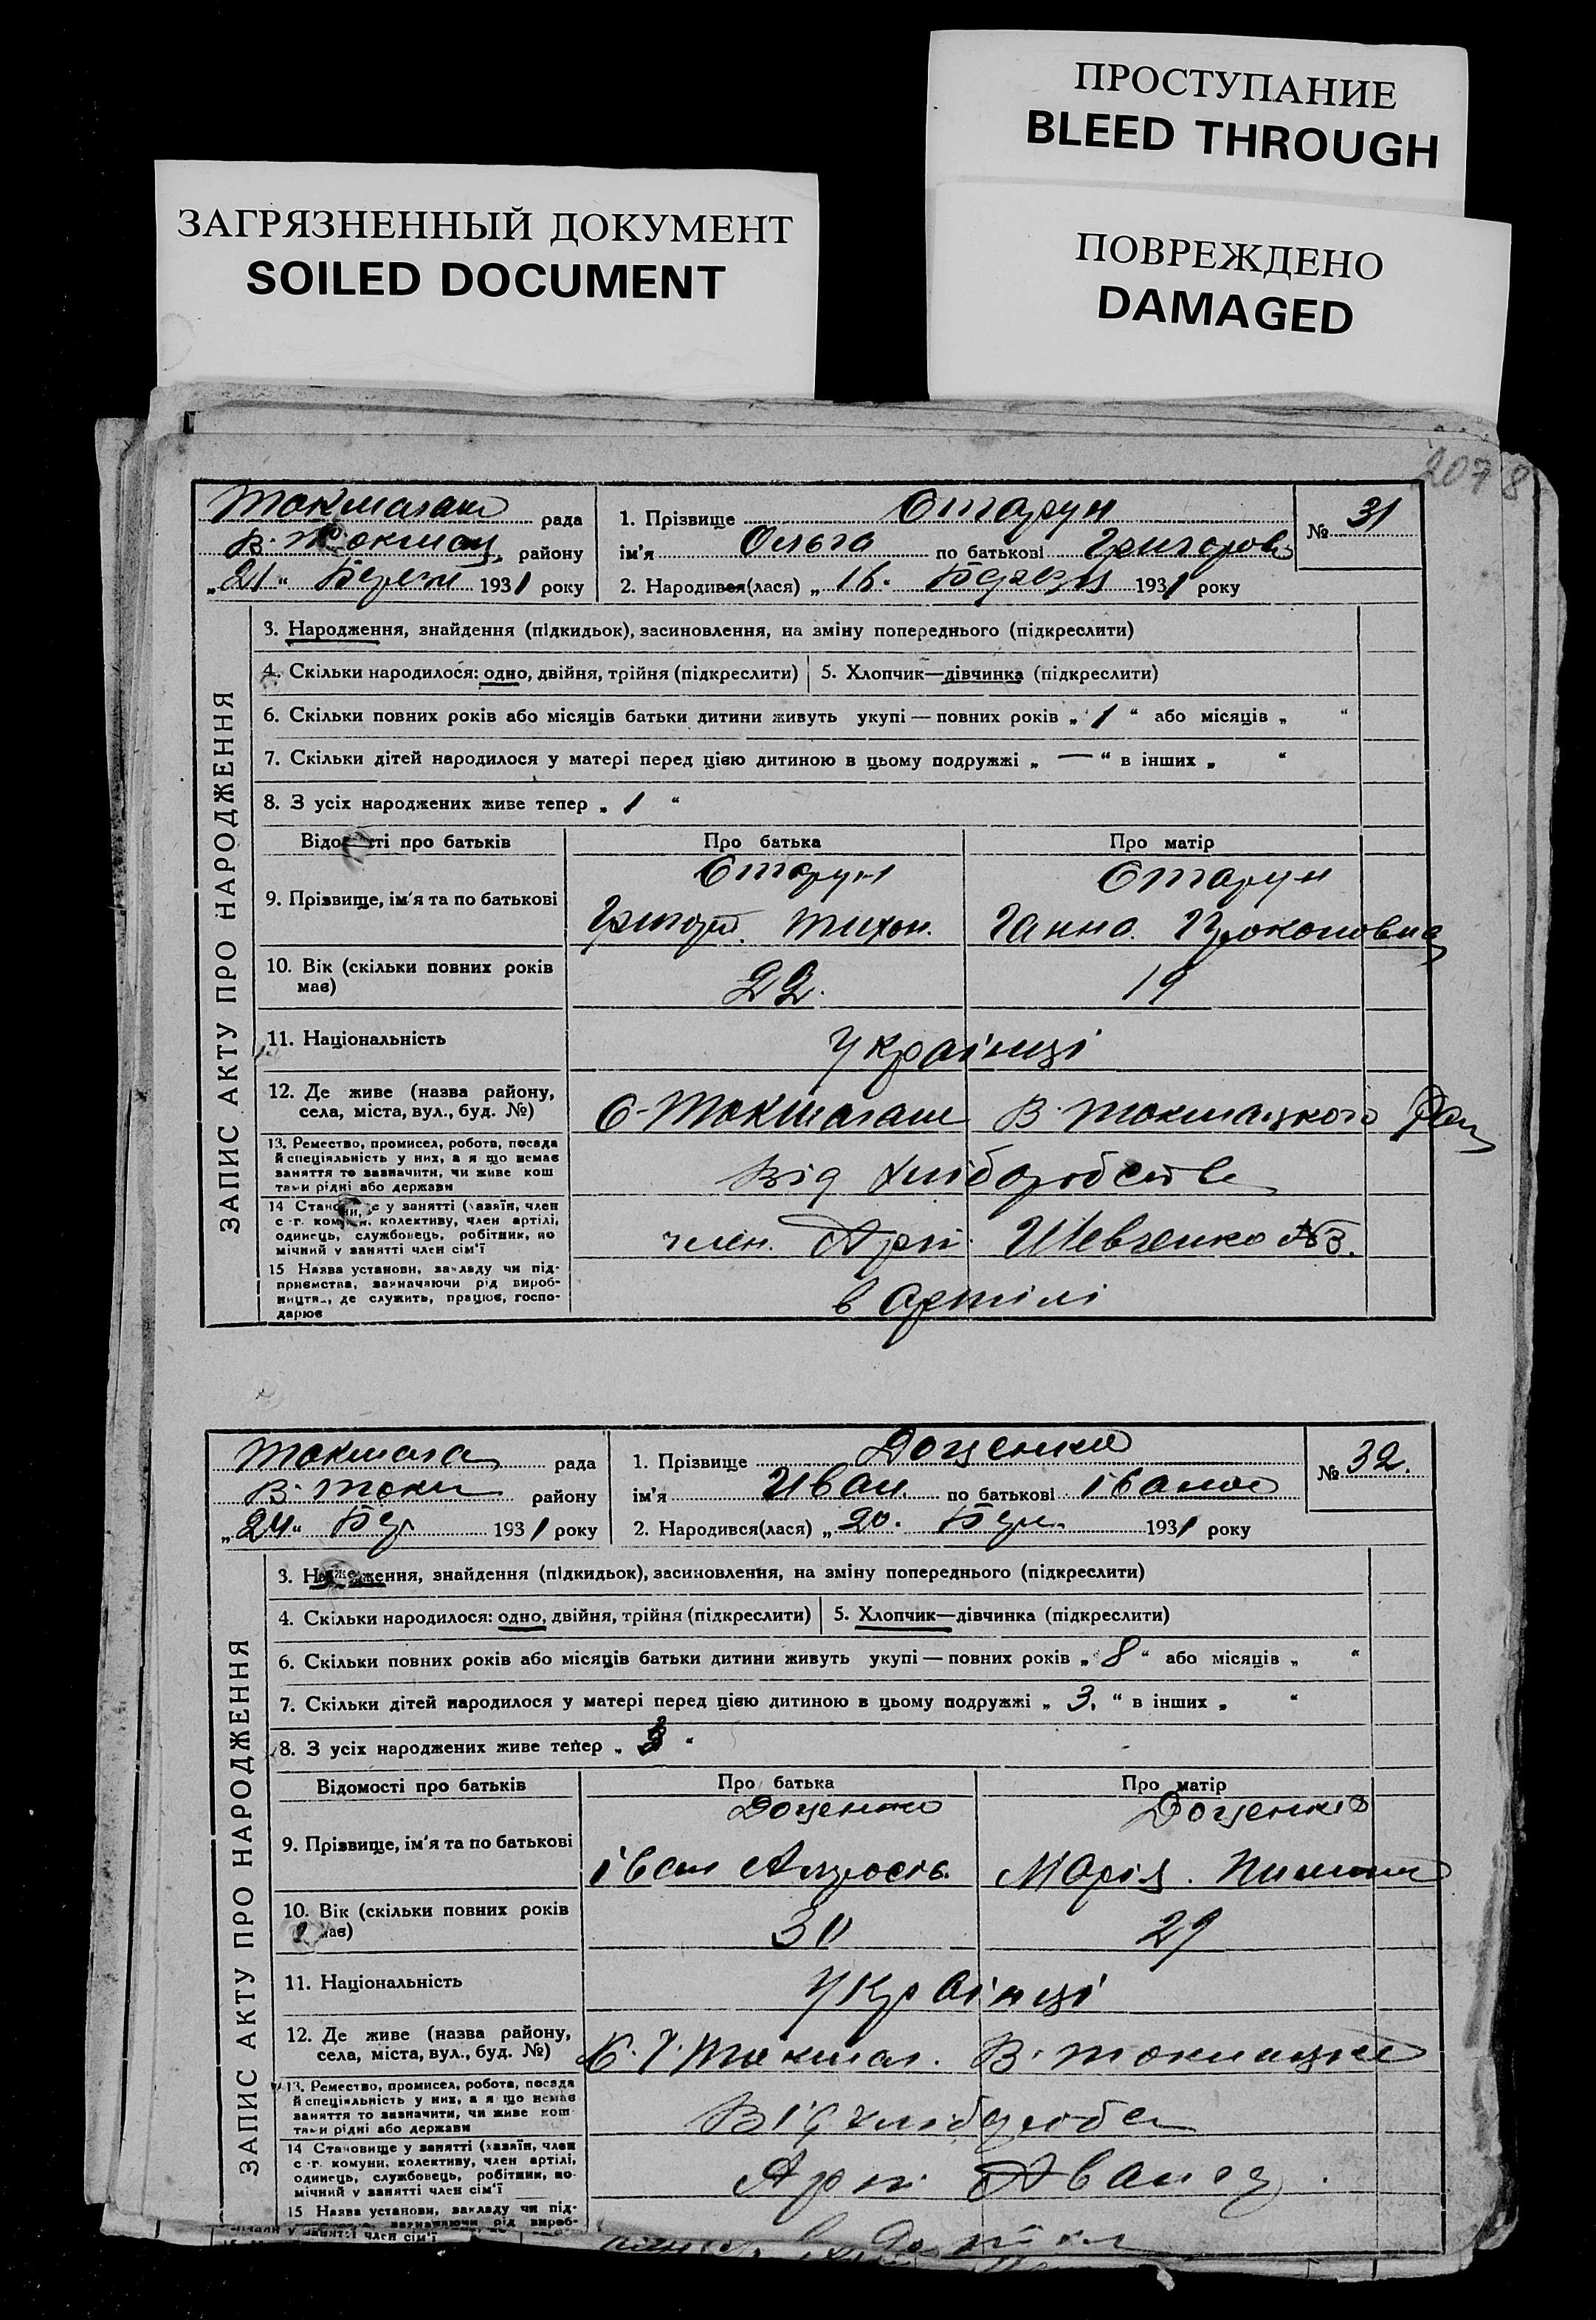 ПРОСТУПАНИЕ
BLEED THROUGH
ЗАГРЯЗНЕННЫЙ ДОКУМЕНТ
SOILED DOCUMENT
ПОВРЕЖДЕНО
DAMAGED
207 8
рада
В. Токмац. району
„21“ Березн 1931 року
1. Прізвище Старун
ім'я Ольга по батькові Григоров
2. Народився(лася) „16. Березн 1931 року
№ 31
ЗАПИС АКТУ ПРО НАРОДЖЕННЯ
3. Народження, знайдення (підкидьок), засиновлення, на зміну попереднього (підкреслити)
4. Скільки народилося: одно, двійня, трійня (підкреслити) 5. Хлопчик—дівчинка (підкреслити)
6. Скільки повних років або місяців батьки дитини живуть укупі — повних років „1“ або місяців „ “
7. Скільки дітей народилося у матері перед цією дитиною в цьому подружжі „—“ в інших „ “
8. З усіх народжених живе тепер „1“
Відомості про батьків Про батька Про матір
Старун Старун
9. Прізвище, ім'я та по батькові
Григор. Тихон. Ганна. Прокоповна
10. Вік (скільки повних років
має) 22. 19
11. Національність Українці
12. Де живе (назва району,
села, міста, вул., буд. №) С. В. Токмацкого Рай
13. Ремество, промисел, робота, посада
й спеціяльність у них, а я що немає
заняття то зазначити, чи живе кош
тами рідні або держави
Від хліборобств
14 Становище у занятті (хазяїн, член
с.-г. комуни, колективу, член артілі,
одинець, службовець, робітник, по
мічний у занятті член сім'ї
член. Арт. Шевченко №3.
15 Назва установи, закладу чи під-
приємства, зазначаючи рід вироб-
ництва, де служить, працює, госпо-
дарює
в артілі
рада
В. Токм району
„24“ Бер 1931 року
1. Прізвище Доценко
ім'я Иван. по батькові Іванов
2. Народився(лася) „20. Бере. 1931 року
№ 32.
ЗАПИС АКТУ ПРО НАРОДЖЕННЯ
3. Народження, знайдення (підкидьок), засиновлення, на зміну попереднього (підкреслити)
4. Скільки народилося: одно, двійня, трійня (підкреслити) 5. Хлопчик—дівчинка (підкреслити)
6. Скільки повних років або місяців батьки дитини живуть укупі — повних років „8“ або місяців „ “
7. Скільки дітей народилося у матері перед цією дитиною в цьому подружжі „3.“ в інших „ “
8. З усіх народжених живе тепер „3“
Відомості про батьків Про батька Про матір
Доценко Доценко
9. Прізвище, ім'я та по батькові
Іван Марія.
10. Вік (скільки повних років
має) 30 29
11. Національність Українці
12. Де живе (назва району,
села, міста, вул., буд. №) В. Токмацке
13. Ремество, промисел, робота, посада
й спеціяльність у них, а я що немає
заняття то зазначити, чи живе кош
тами рідні або держави
Від хлібороб
14 Становище у занятті (хазяїн, член
с.-г. комуни, колективу, член артілі,
одинець, службовець, робітник, по-
мічний у занятті член сім'ї
Арт. Аванг
15 Назва установи, закладу чи під-
зазначаючи рід вироб-
у занятті член сім'ї